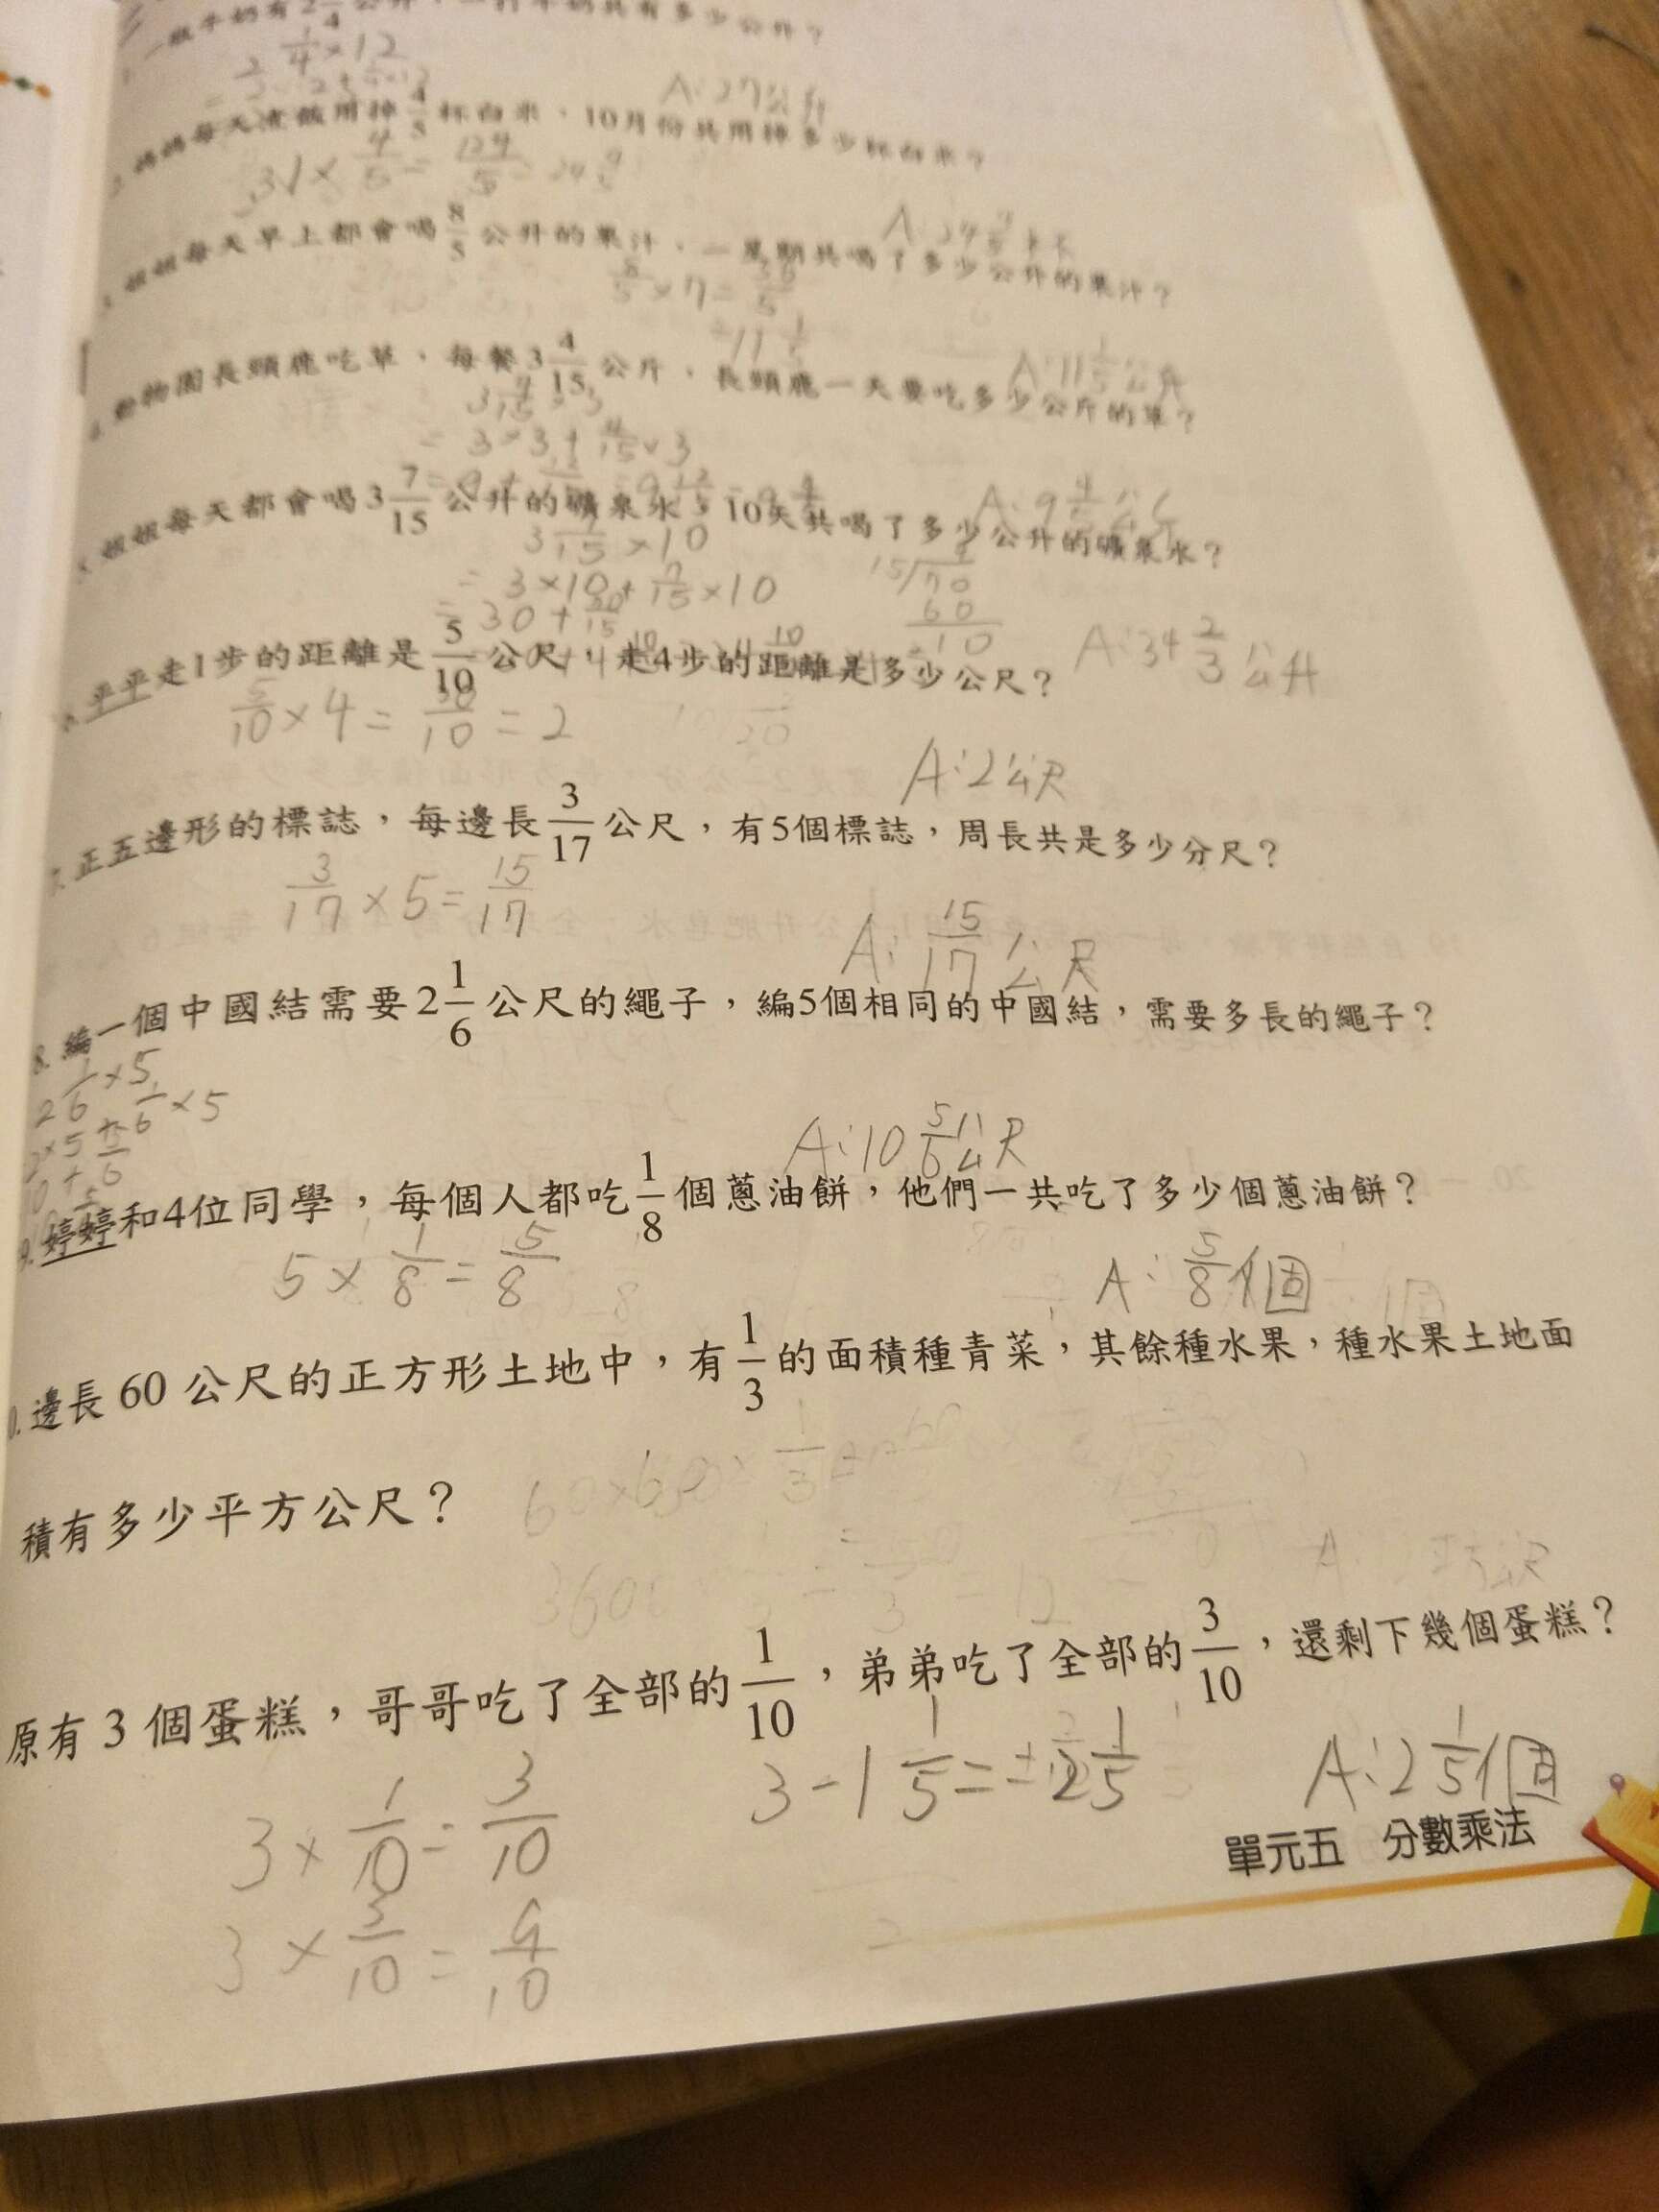 一瓶牛奶有2 1/4公升,一打牛奶共有多少公升?
2 1/4×12
A:27公升
媽媽每天煮飯用掉4/5杯白米,10月份共用掉多少杯白米?
31×4/5=124/5=24
姐姐每天早上都會喝8/5公升的果汁,一星期共喝了多少公升的果汁?
8/5×7=56/5
=11 1/5
A:11 1/5公升
動物園長頸鹿吃草,每餐3 4/15公斤,長頸鹿一天要吃多少公斤的草?
3 4/15×3
=3×3+4/15×3
A:9 4/5公斤
姐姐每天都會喝3 7/15公升的礦泉水,10天共喝了多少公升的礦泉水?
3 7/15×10
=3×10+7/15×10
=30+70/15
15/70
60
10
A:34 2/3公升
平平走1步的距離是5/10公尺,走4步的距離是多少公尺?
5/10×4=20/10=2
A:2公尺
7.正五邊形的標誌,每邊長3/17公尺,有5個標誌,周長共是多少分尺?
3/17×5=15/17
A:15/17公尺
8.編一個中國結需要2 1/6公尺的繩子,編5個相同的中國結,需要多長的繩子?
2 1/6×5
2×5+1/6×5
A:10 5/6公尺
9.婷婷和4位同學,每個人都吃1/8個蔥油餅,他們一共吃了多少個蔥油餅?
5×1/8=5/8
A:5/8個
0.邊長60公尺的正方形土地中,有1/3的面積種青菜,其餘種水果,種水果土地面
積有多少平方公尺?
原有3個蛋糕,哥哥吃了全部的1/10,弟弟吃了全部的3/10,還剩下幾個蛋糕?
3×1/10=3/10
3×3/10=9/10
3-1 1/5=2 1/5
A:2 1/5個
單元五 分數乘法